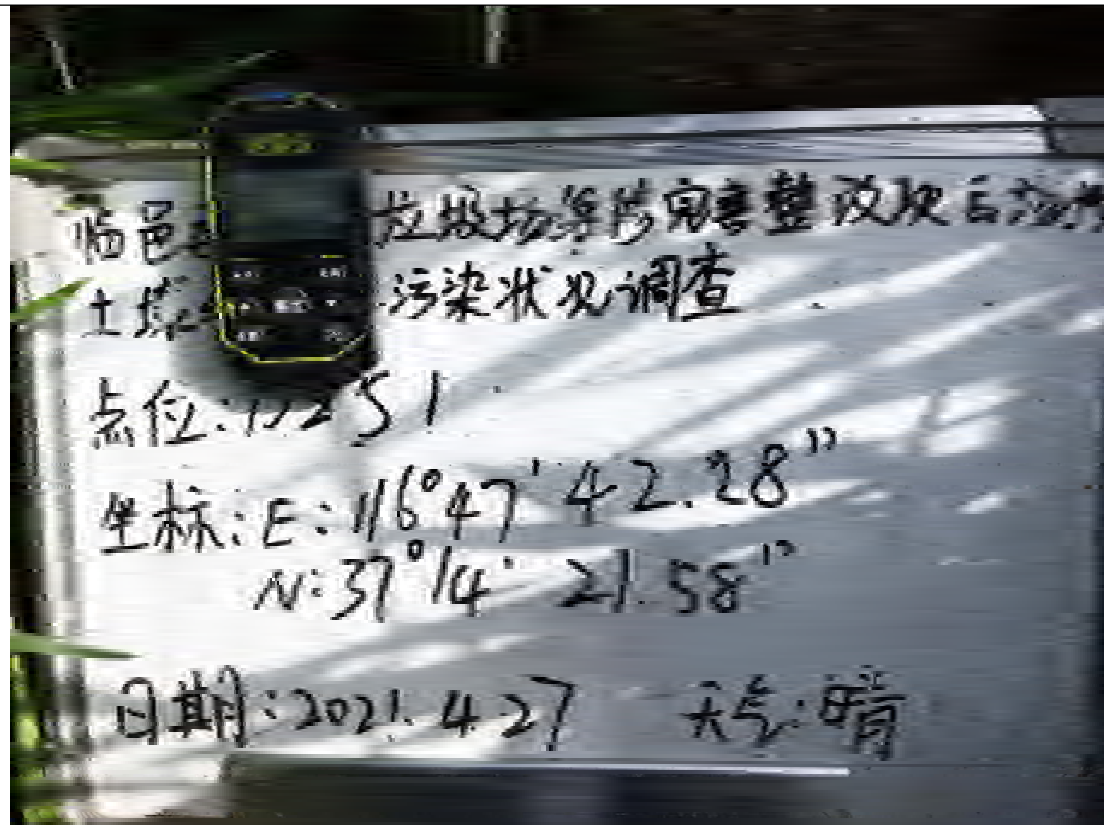 临邑 垃圾场等防完善整改项目
土壤 污染状况调查
点位: S1
坐标:E:116°47'42.28"
N:37°14'21.58"
日期:2021.4.27 天气:晴